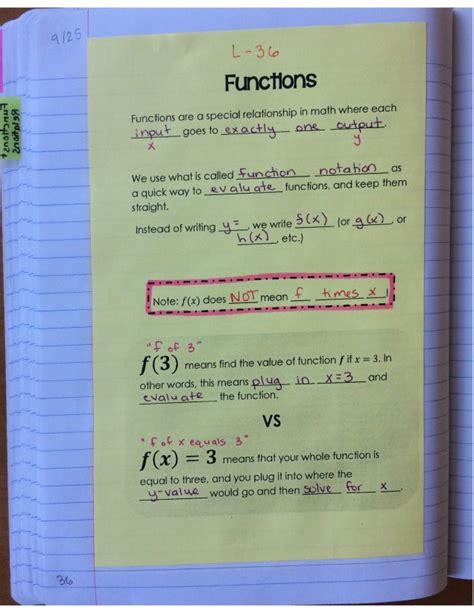 9/25
L-36
Functions
Functions are a special relationship in math where each
input goes to exactly one output.
x y
We use what is called function notation as
a quick way to evaluate functions, and keep them
straight.
Instead of writing y=, we write f(x) (or g(x), or
h(x), etc.)
Note: f(x) does NOT mean f times x!
"f of 3"
f(3) means find the value of function f if x = 3. In
other words, this means plug in x=3 and
evaluate the function.
VS
"f of x equals 3"
f(x) = 3 means that your whole function is
equal to three, and you plug it into where the
y-value would go and then solve for x.
36
Relations
Functions